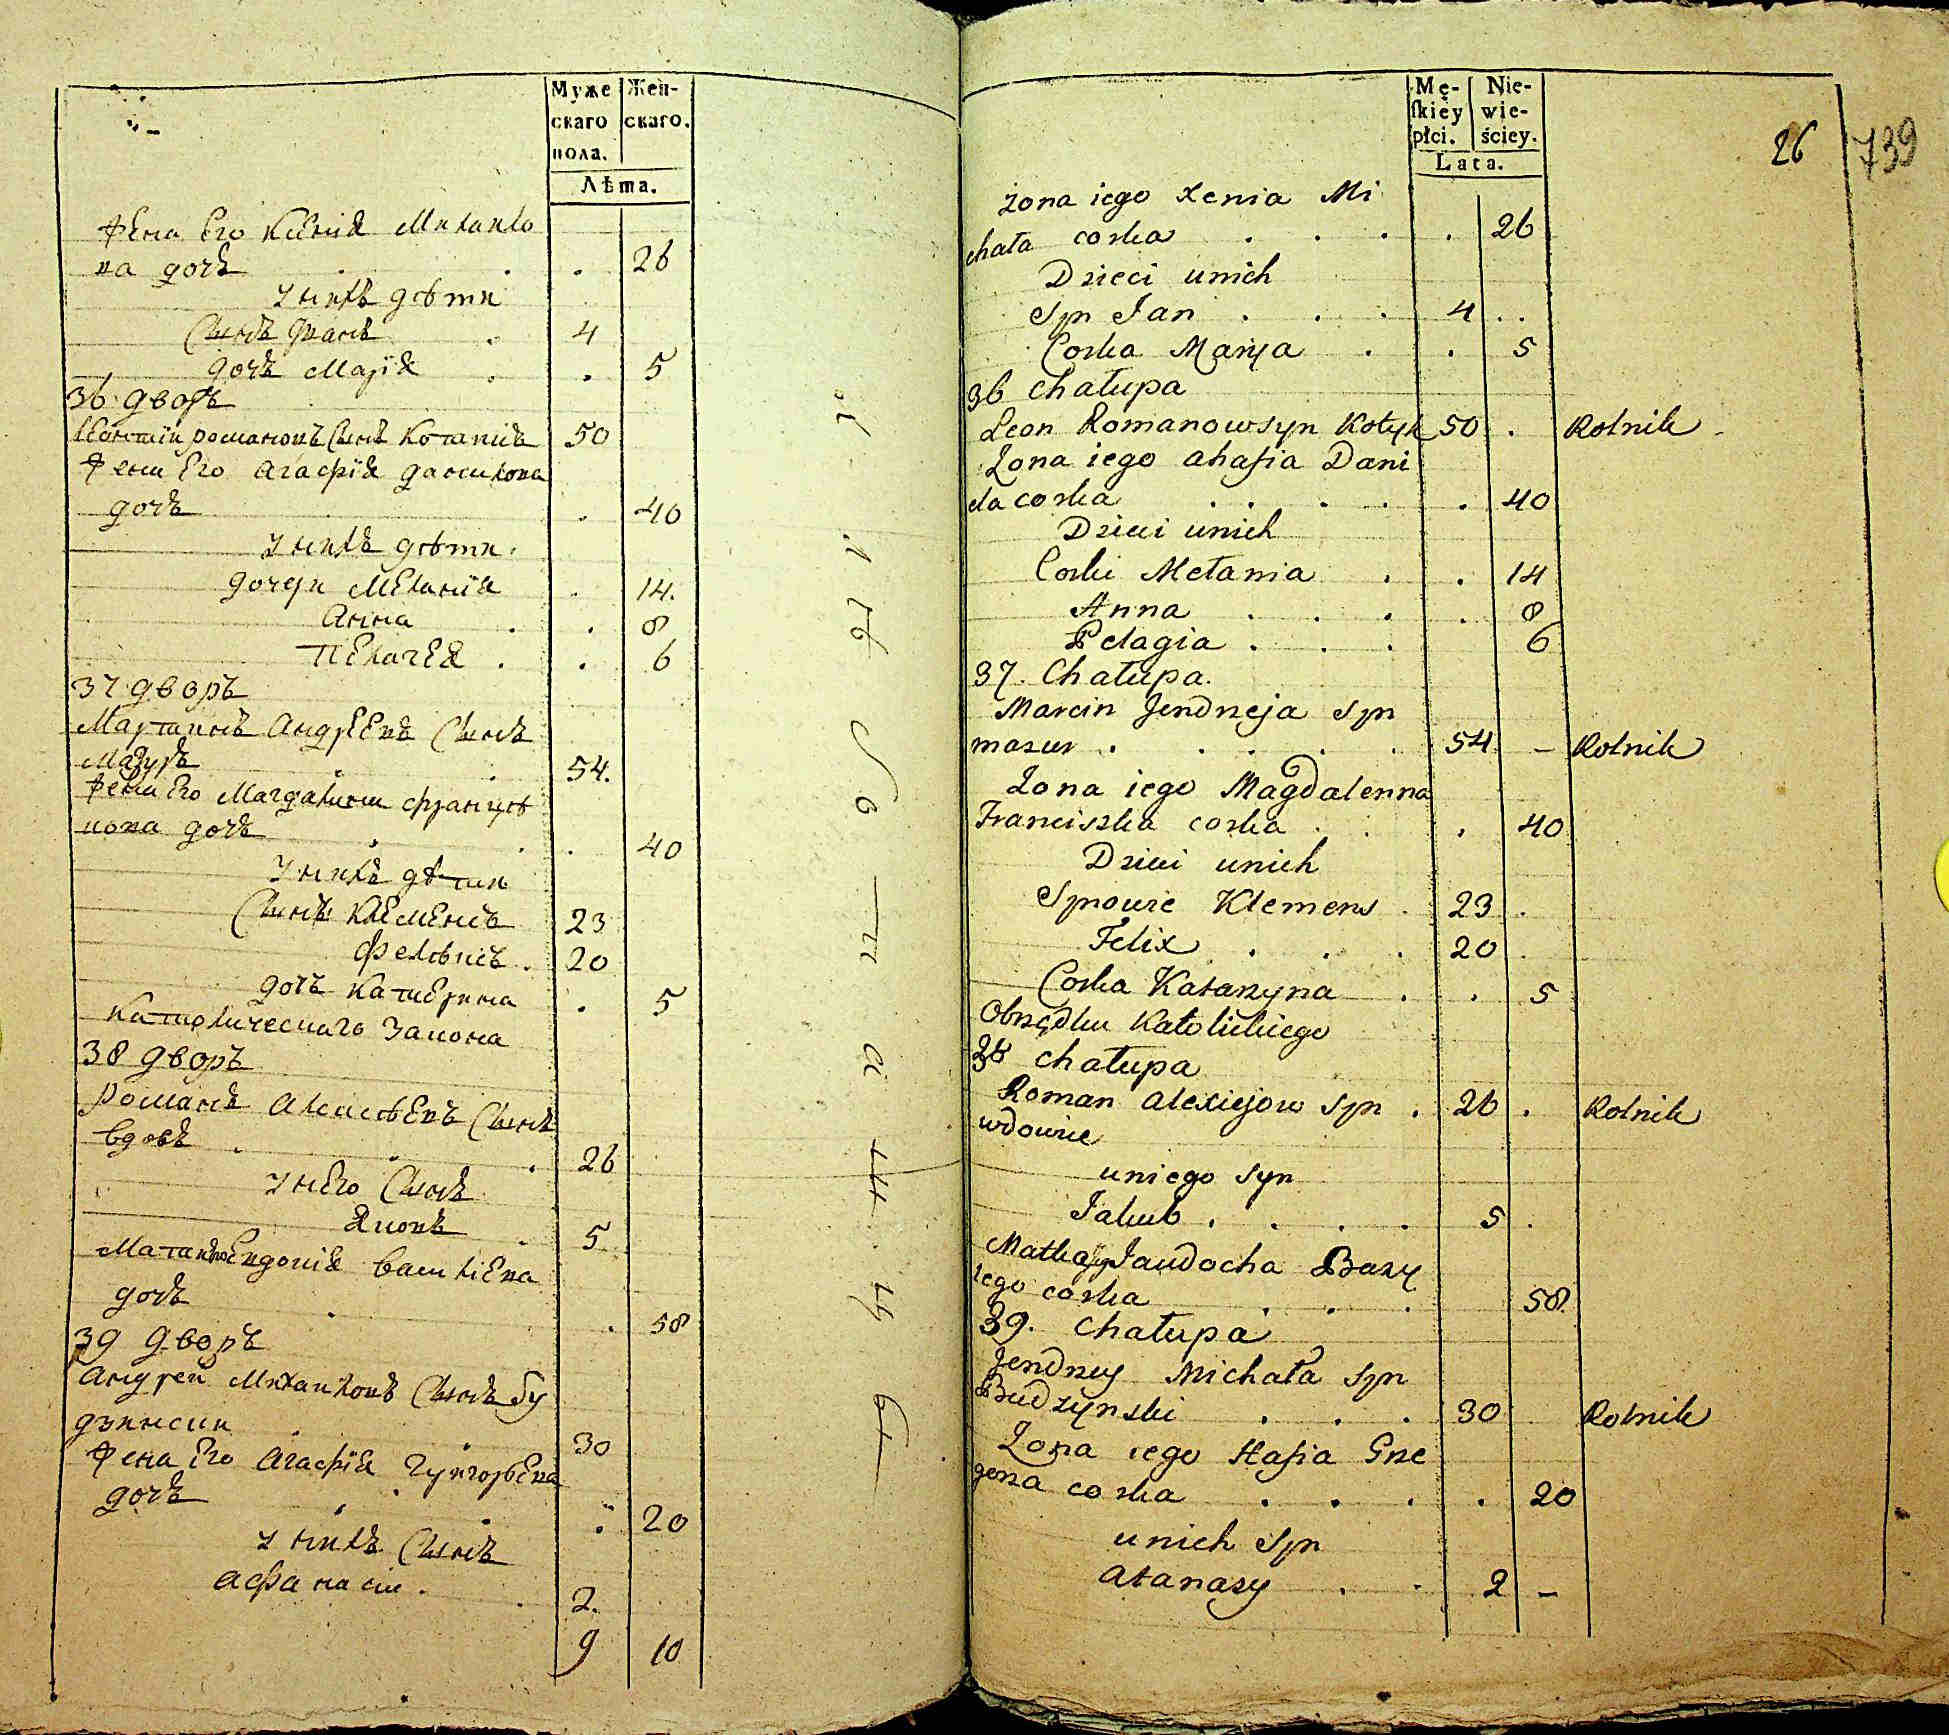 Муже
скаго
пола.
Жен-
скаго.
Лѣта.
жена Его Ксенія Михаило
ва дочь . . . 26
у нихъ дѣти
Сынъ Иванъ . 4
дочь Марія . . 5
36 дворъ
романовъ Сынъ 50
жена Его Агафія данилова
дочь . 40
у нихъ дѣти.
дочери Меланія . 14.
Анна . . 8
Пелагея . . 6
37 дворъ
Мартинъ Андреевъ Сынъ
Мазуръ . . 54.
жена Его Магдалина францѣ
кова дочь . . . 40
у нихъ дѣти
Сынъ Клеменсъ 23
Феликсъ . 20
дочь Катерина . 5
Католическаго Закона
38 дворъ
романъ Алексѣевъ Сынъ
вдовъ . . . 26
у него Сынъ
Яковъ . 5
Евдокія Василіева
дочь . . 58
39 дворъ
Андрей Михаиловъ Сынъ Бу
дзински . . 30
жена Его Агафія Григорьева
дочь . . . 20
у нихъ Сынъ
афанаси . . 2.
9 10
Mę-
skiey
płci.
Nie-
wie-
ściey.
Lata.
26
739
żona iego Xenia Mi
chała corka . . . . 26
Dzieci unich
Syn Jan . . . 4 . .
Corka Marya . . 5
36 Chałupa
Leon Romanow syn Kotyk 50 . Rolnik
Zona iego ahafia Dani
ela corka . . . . . 40
Dzieci unich
Corki Mełania . . 14
Anna . . . . 8
Pelagia . . . 6
37. Chałupa.
Marcin Jendrzeja Syn
mazur . . . . . 54 – Rolnik
Zona iego Magdalenna
Franciszka corka . . . 40
Dzieci unich
Synowie Klemens . 23 .
Felix . . . 20 .
Corka Katarzyna . . 5
Obrządku Katolickiego
38 chałupa
Roman alexiejow Syn . 26 . Rolnik
wdowiec
uniego syn
Jakub . . . . 5 .
Matka Jaudocha Bazy
lego corka . . . 58.
39. Chałupa
Jendrzey Michała Syn
Budzynski . . . 30 Rolnik
Zona iego Hafia Grze
gorza corka . . . . . 20
unich Syn
atanazy . . 2 –